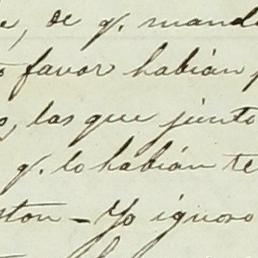 de q. mand
favor habían
las que junto
q. lo habían te
ston - Yo ignoro